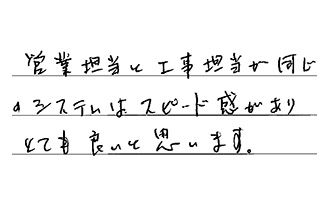 営業担当と工事担当が同じ
のシステムはスピード感があり
とても良いと思います。